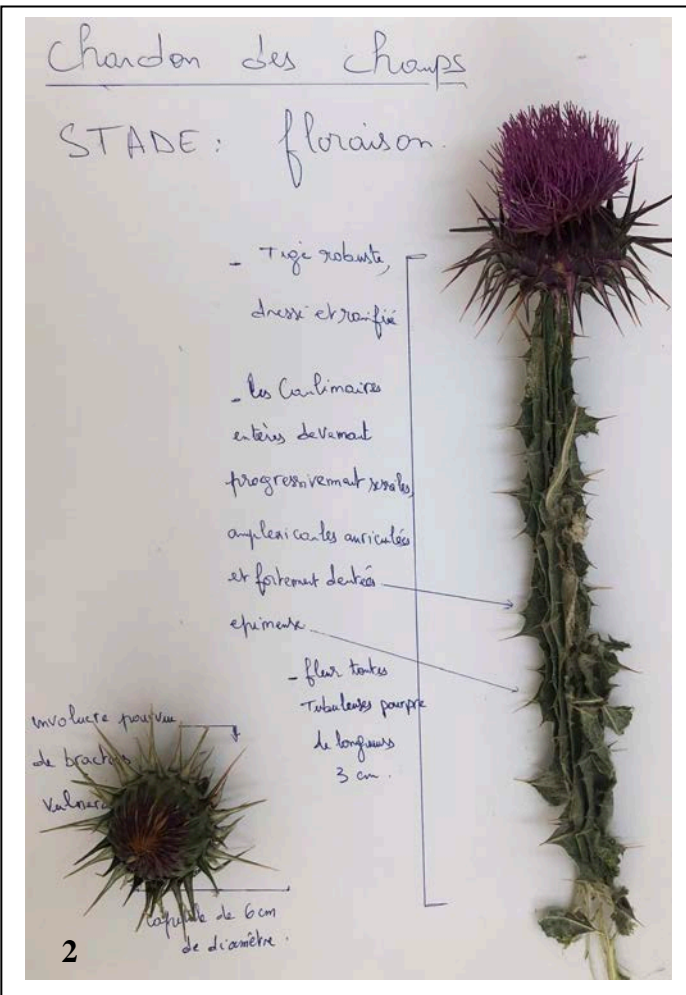 Chardon des champs
STADE : floraison.
- Tige robuste,
dressé et ramifié
- les Caulinaires
entères devenant
progressivement sessiles,
amplexicaules auriculées
et fortement dentées
epineuse
- fleur toutes
Tubuleuses pourpre
de longueurs
3 cm.
involucre pourvu
de bractées
capitule de 6 cm
de diamètre.
2